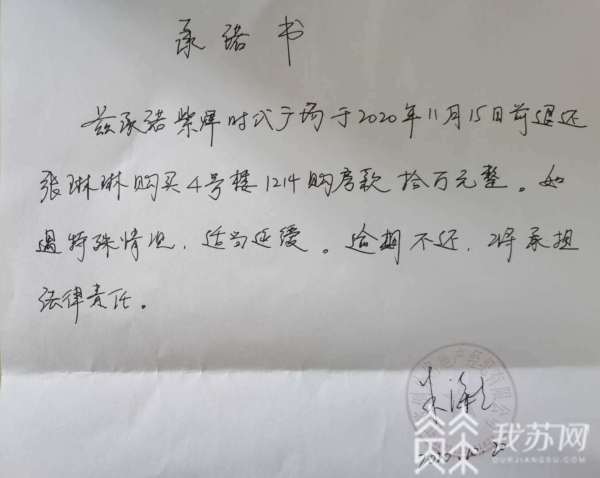 承诺书
兹承诺紫辉时代广场于2020年11月15日前退还
张琳琳购买4号楼1214购房款拾万元整。如
遇特殊情况,适当延缓。逾期不还,将承担
法律责任。
我苏网
OURJIANGSU.COM